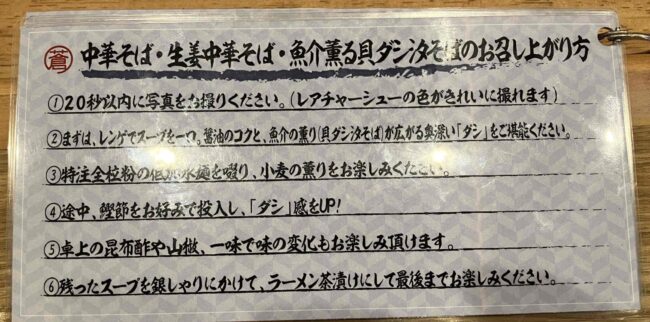 蒼 中華そば・生姜中華そば・魚介薫る貝ダシ汐そばのお召し上がり方
①20秒以内に写真をお撮りください。(レアチャーシューの色がきれいに撮れます)
②まずは、レンゲでスープを一口。醤油のコクと、魚介の薫り(貝ダシ汐そば)が広がる奥深い「ダシ」をご堪能ください。
③特注全粒粉の低加水麺を啜り、小麦の薫りをお楽しみください。
④途中、鰹節をお好みで投入し、「ダシ」感をUP!
⑤卓上の昆布酢や山椒、一味で味の変化もお楽しみ頂けます。
⑥残ったスープを銀しゃりにかけて、ラーメン茶漬けにして最後までお楽しみください。